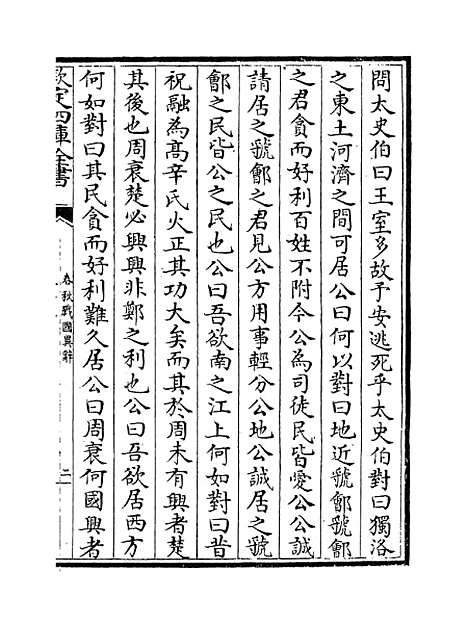 問太史伯曰王室多故予安逃死乎太史伯對曰獨洛
之東土河濟之間可居公曰何以對曰地近虢鄶虢鄶
之君貪而好利百姓不附今公為司徒民皆愛公公誠
請居之虢鄶之君見公方用事輕分公地公誠居之虢
鄶之民皆公之民也公曰吾欲南之江上何如對曰昔
祝融為高辛氏火正其功大矣而其於周未有興者楚
其後也周衰楚必興興非鄭之利也公曰吾欲居西方
何如對曰其民貪而好利難久居公曰周衰何國興者
欽定四庫全書
春秋戰國異辭
二